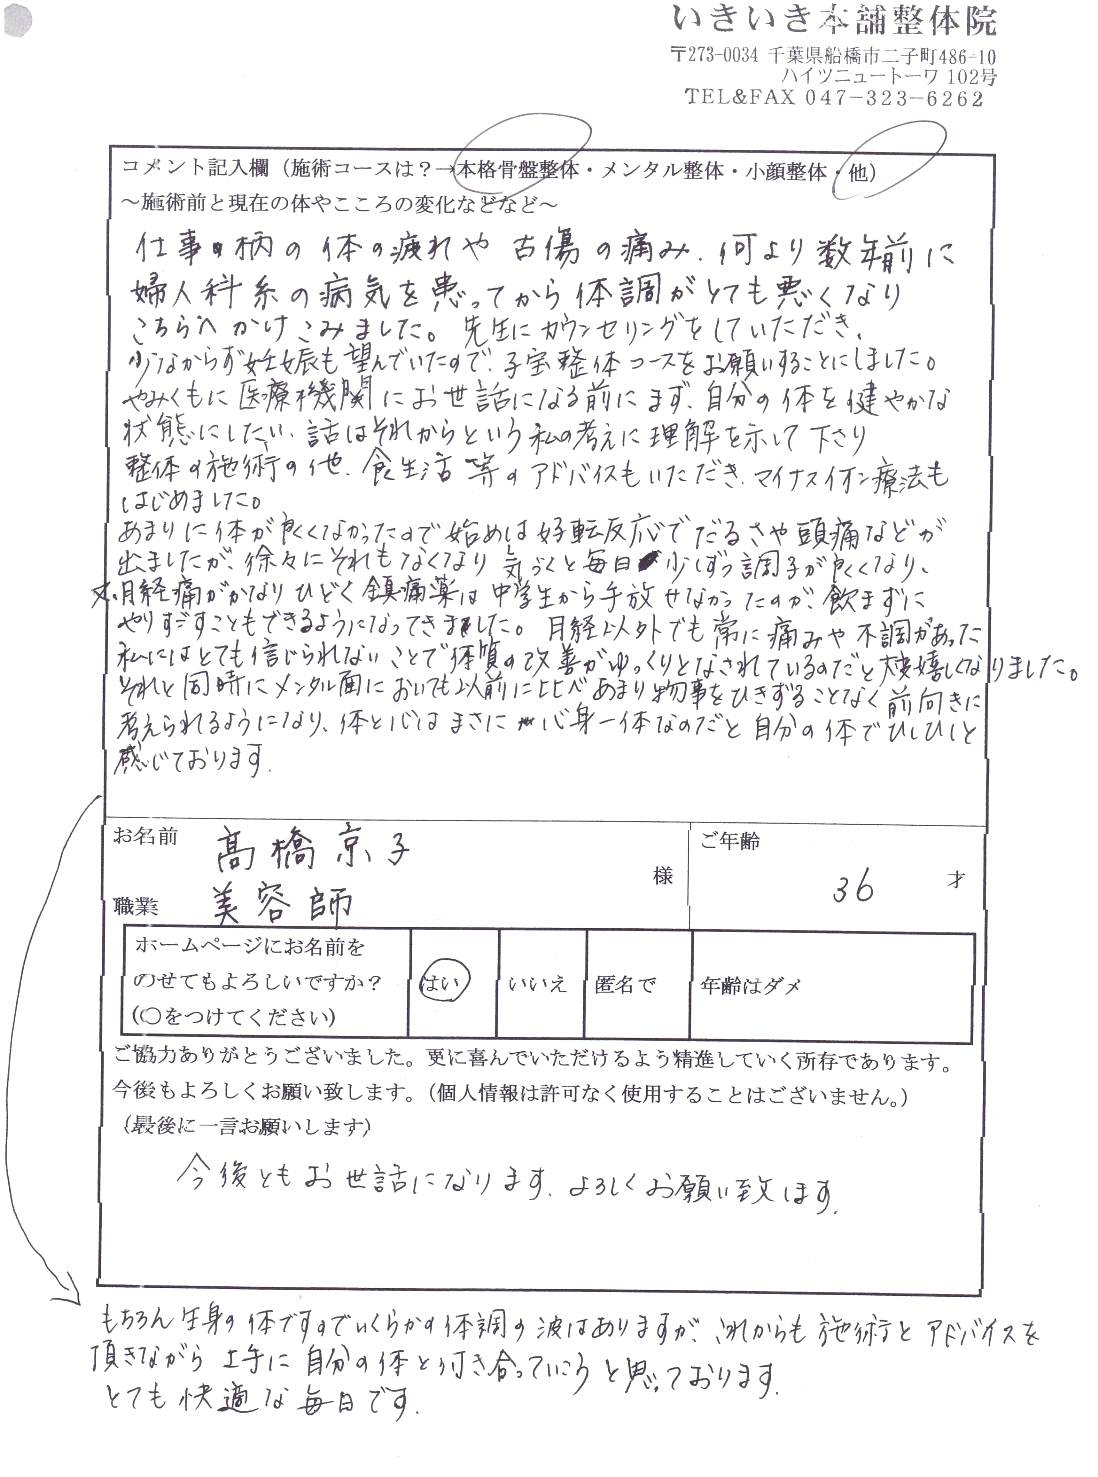 いきいき本舗整体院
〒273-0034 千葉県船橋市二子町486-10
ハイツニュートーワ 102号
TEL&FAX 047-323-6262
コメント記入欄（施術コースは？→本格骨盤整体・メンタル整体・小顔整体・他）
～施術前と現在の体やこころの変化などなど～
仕事柄の体の疲れや古傷の痛み、何より数年前に
婦人科系の病気を患ってから体調がとても悪くなり
こちらへかけこみました。先生にカウンセリングをしていただき、
少なからず妊娠も望んでいたので、子宝整体コースをお願いすることにしました。
やみくもに医療機関にお世話になる前にまず、自分の体を健やかな
状態にしたい、話はそれからという私の考えに理解を示して下さり
整体の施術の他、食生活等のアドバイスもいただき、マイナスイオン療法も
はじめました。
あまりに体が良くなかったので始めは好転反応でだるさや頭痛などが
出ましたが、徐々にそれもなくなり気づくと毎日少しずつ調子が良くなり、
又、月経痛がかなりひどく鎮痛薬は中学生から手放せなかったのが、飲まずに
やりすごすこともできるようになってきました。月経以外でも常に痛みや不調があった
私にはとても信じられないことで体質の改善がゆっくりとなされているのだと大変嬉しくなりました。
それと同時にメンタル面においても以前に比べあまり物事をひきずることなく前向きに
考えられるようになり、体と心はまさに心身一体なのだと自分の体でひしひしと
感じております。
お名前 髙橋京子 様 ご年齢 36 才
職業 美容師
ホームページにお名前を
のせてもよろしいですか？ はい いいえ 匿名で 年齢はダメ
(○をつけてください)
ご協力ありがとうございました。更に喜んでいただけるよう精進していく所存であります。
今後もよろしくお願い致します。（個人情報は許可なく使用することはございません。）
（最後に一言お願いします）
今後ともお世話になります。よろしくお願い致します。
もちろん生身の体ですのでいくらかの体調の波はありますが、これからも施術とアドバイスを
頂きながら上手に自分の体と付き合っていこうと思っております。
とても快適な毎日です。